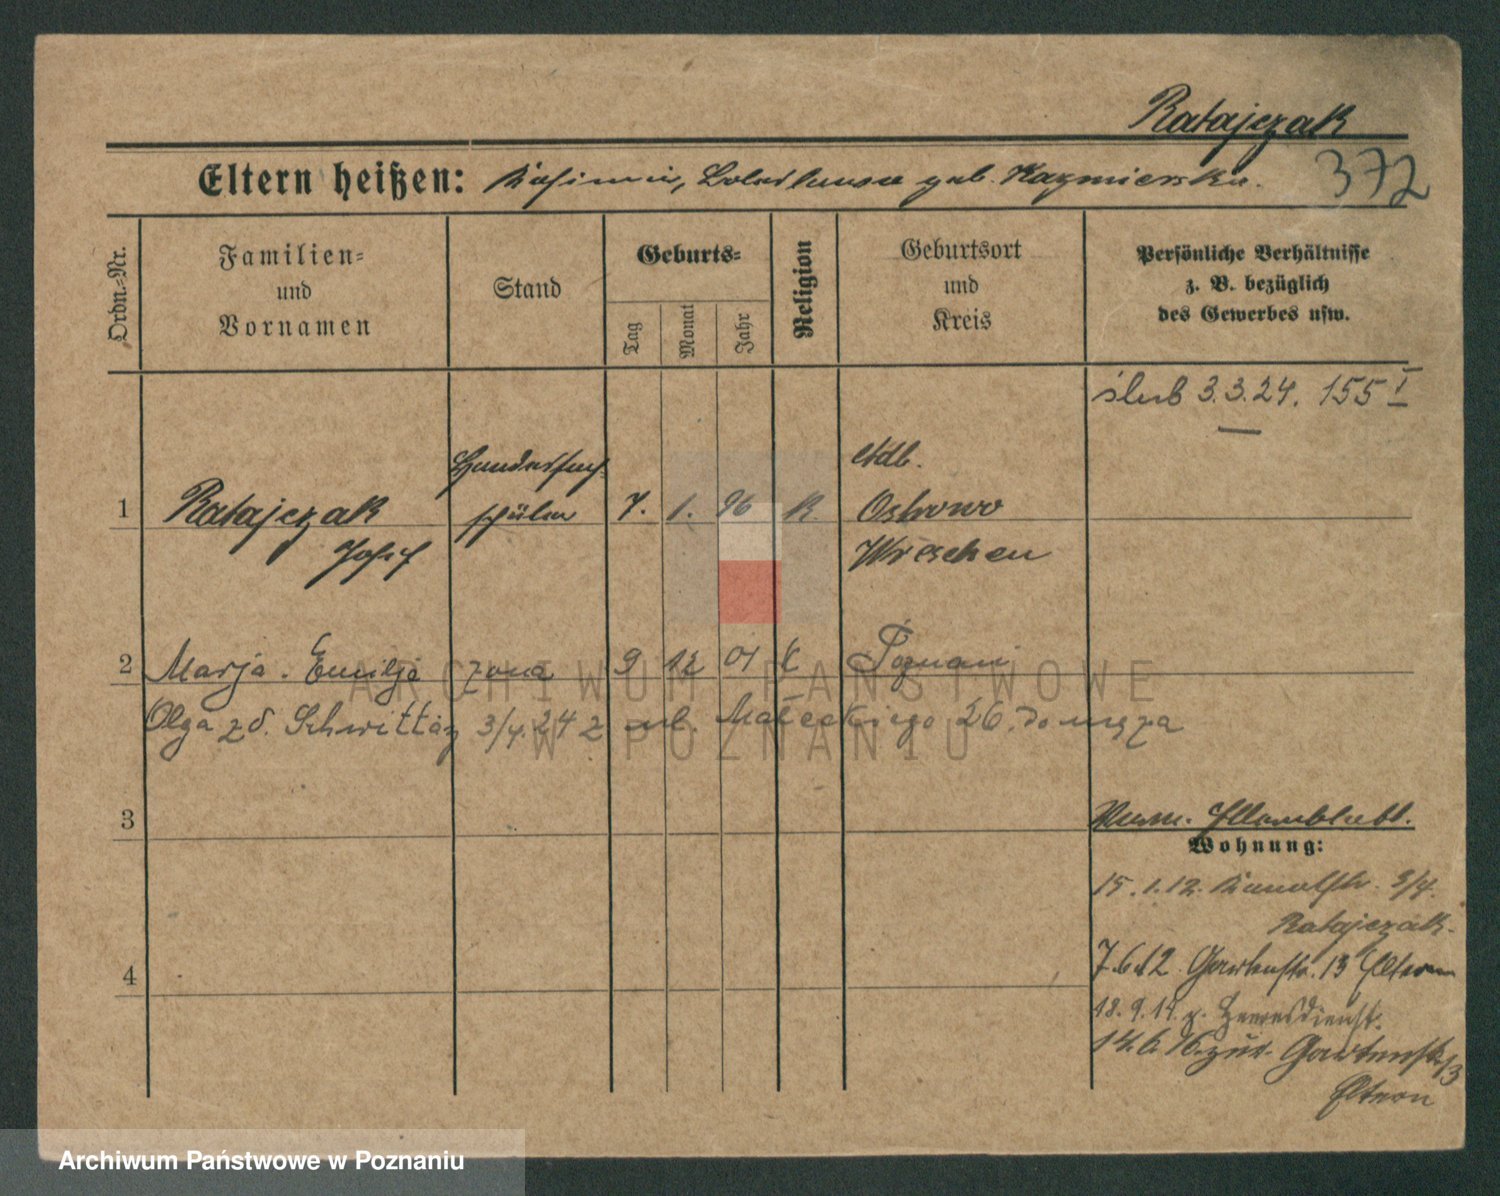 Ratajczak
Eltern heißen: Kasimir, geb. Kazmierska.
372
Ordn.=Nr.
Familien=
und
Vornamen
Stand
Geburts=
Tag
Monat
Jahr
Religion
Geburtsort
und
Kreis
Persönliche Verhältnisse
z. B. bezüglich
des Gewerbes usw.
ślub 3.3.24. 155 I
1
Ratajczak
Josef
schüler
7. 1. 96 K.
Ostrowo
Wreschen
2 Marja. Emilja żona 9 12 01 K Poznań
Olga zd. Schwittay 3/4.24 z ul. Małeckiego 26. do męża
3
Wohnung:
15.1.12. 3/4.
Ratajczak.
4
7.6.12. Gartenstr. 13 Eltern
18.9.14. z. Heeresdienst.
14.6.16. zur. Gartenstr. 13
Eltern
ARCHIWUM PAŃSTWOWE
W POZNANIU
Archiwum Państwowe w Poznaniu